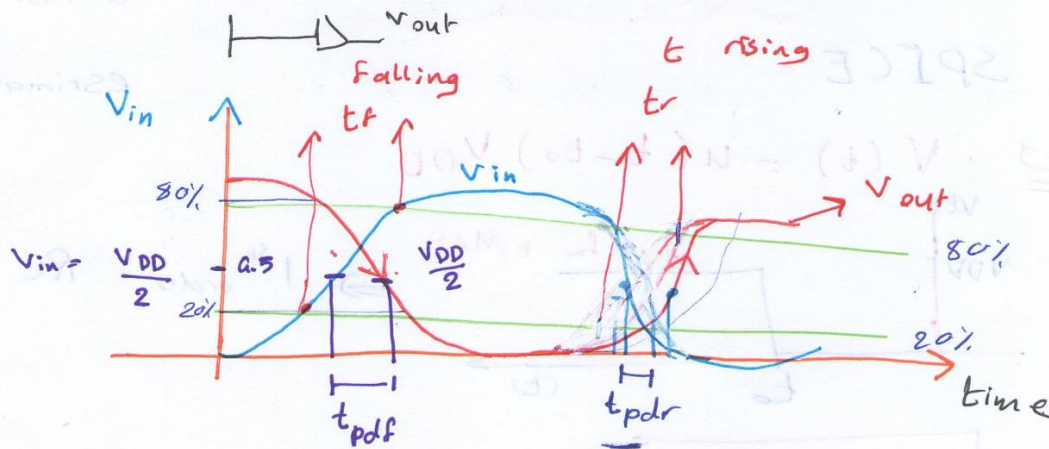 Vout
SPICE
falling
t rising
tf
tr
Vin
Vin
80%
Vout
80%
Vin = VDD/2
0.5
VDD/2
20%
20%
time
tpdf
tpdr